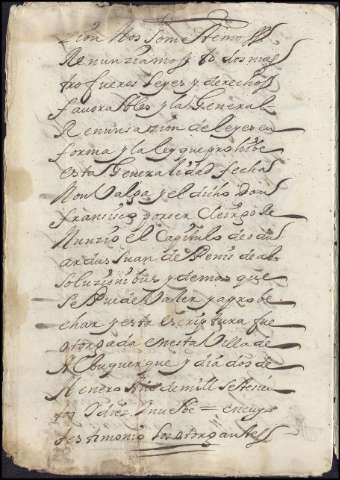 zion Nos Sometemos
Renunziamos todos nues
tro fueros leyes y derechos
favorables y la General
Renunsiazion de leyes en
forma y la ley que prohibe
esta Generalidad fecha
Non Valga y el dicho Don
Francisco por ser Clerigo Re
Nunzio el Capitulo
ardus Suan de Penis de ab
soluzionibus y demas que
se pueda Valer y aprobe
char y esta escriptura fue
otorgada en esta Villa de
Alburquerque y dia dos de
Henero de mill Setecien
tos Y diez Y nuebe = en cuyo
testimonio los otorgantes